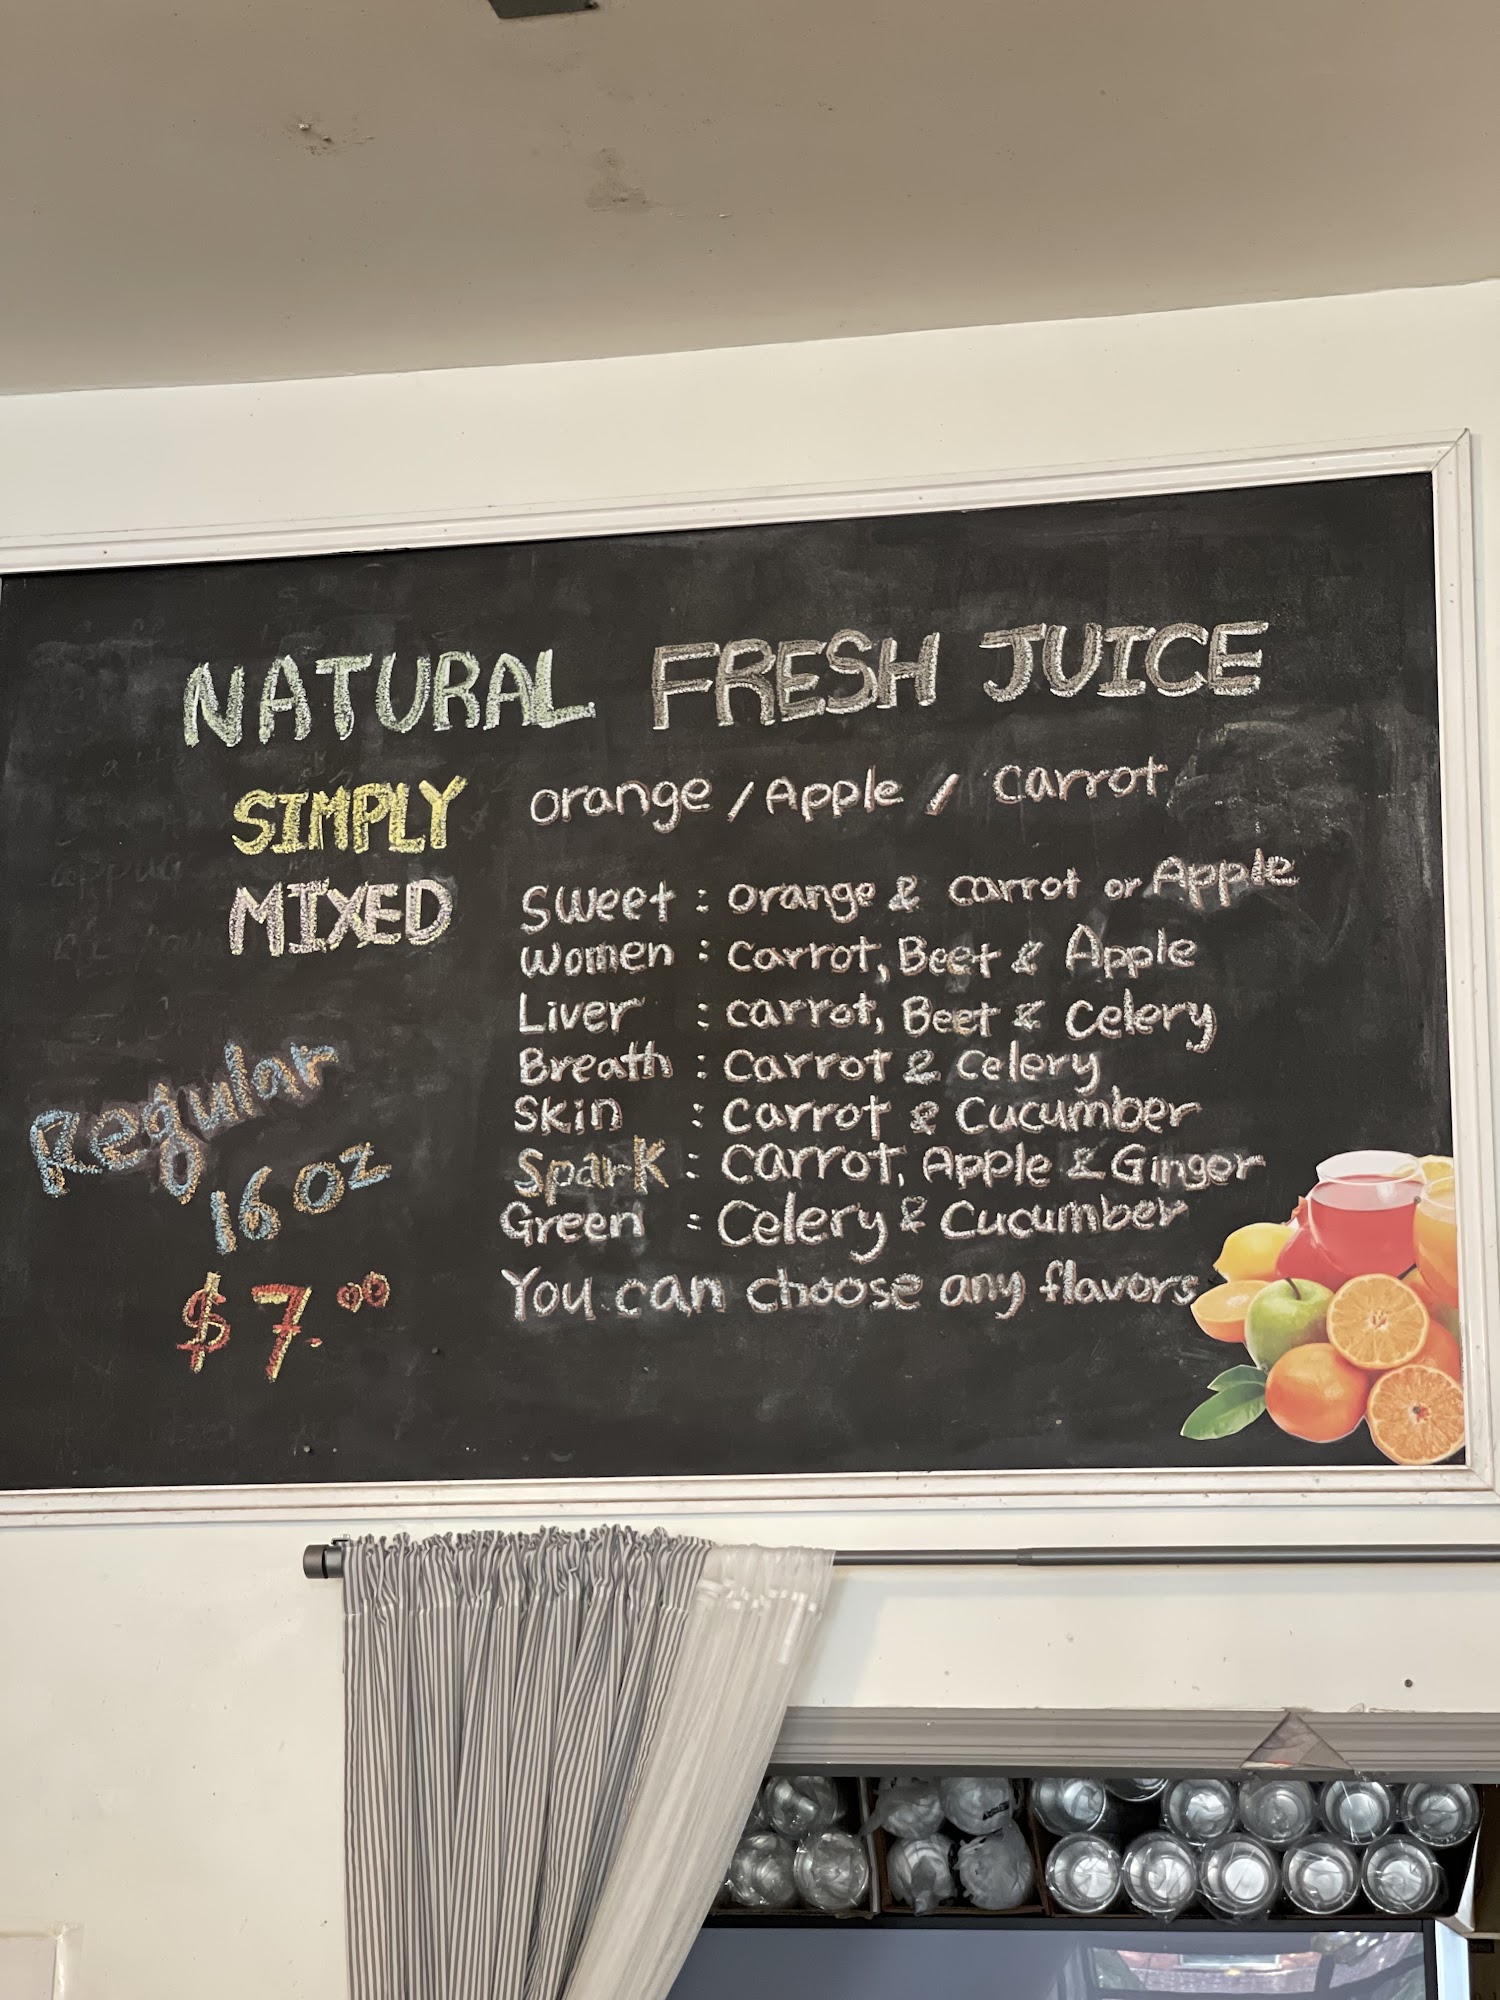 NATURAL FRESH JUICE
SIMPLY orange / Apple / Carrot
MIXED
Sweet : orange & carrot or Apple
Women : Carrot, Beet & Apple
Liver : carrot, Beet & Celery
Breath : Carrot & Celery
Skin : Carrot & Cucumber
Spark : Carrot, Apple & Ginger
Green : Celery & Cucumber
You can choose any flavors
Regular
16 oz
$7.00